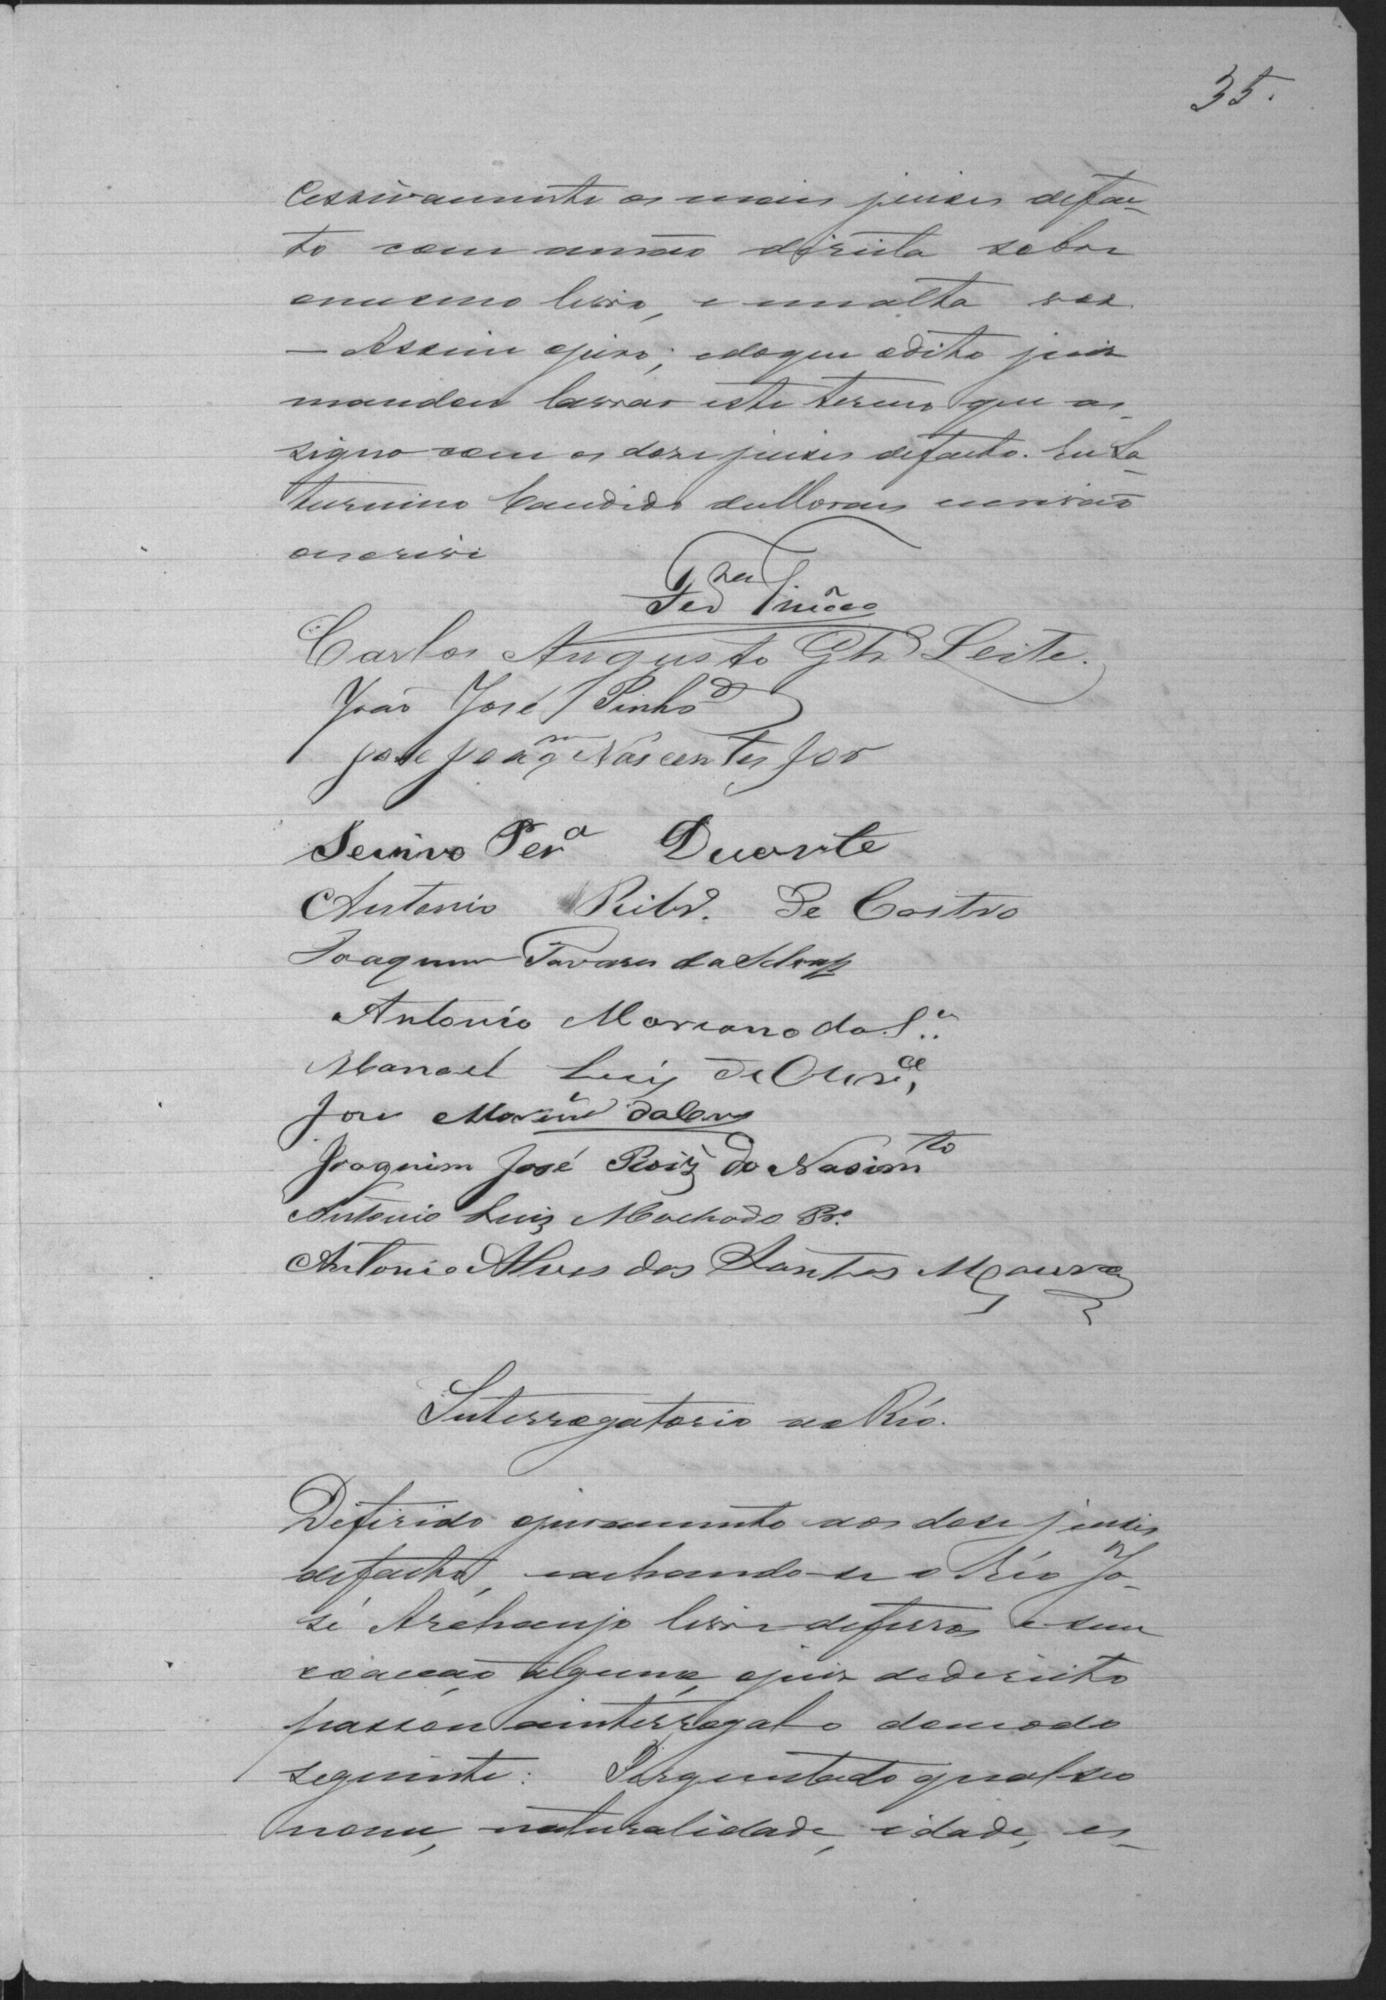 35.
cessivamente os mais juises defac-
to com amão direita sobre
omesmo livro, e em alta voz
— Assim ojuro; edoque odito juiz
mandou lavrar este termo que as-
signo com os dose juises defacto. Eu Sa-
turnino Candido de Moraes escrivão
oescrivi
Carlos Augusto Leite.
João José Pinhº
José Joaqm Nascentes Jor
Perª Duarte
Antonio Ribrº. De Castro
Joaquim Tavares da Silvª
Antonio Marianno da Sª
Manoel Luiz de Olivrª
José
Joaquim José Roiz do Nascimto
Antonio Luiz Machado
Antonio Alves dos Santos Moura
Interrogatorio ao Réo.
Deferido ojuramento aos dose juises
defacto, eachando-se o Réo Jo-
sé Archanjo livre deferros e sem
coacção alguma, ojuiz dedereito
passou ainterrogal-o domodo
seguinte: Perguntado qual seo
nome, naturalidade, idade, es-